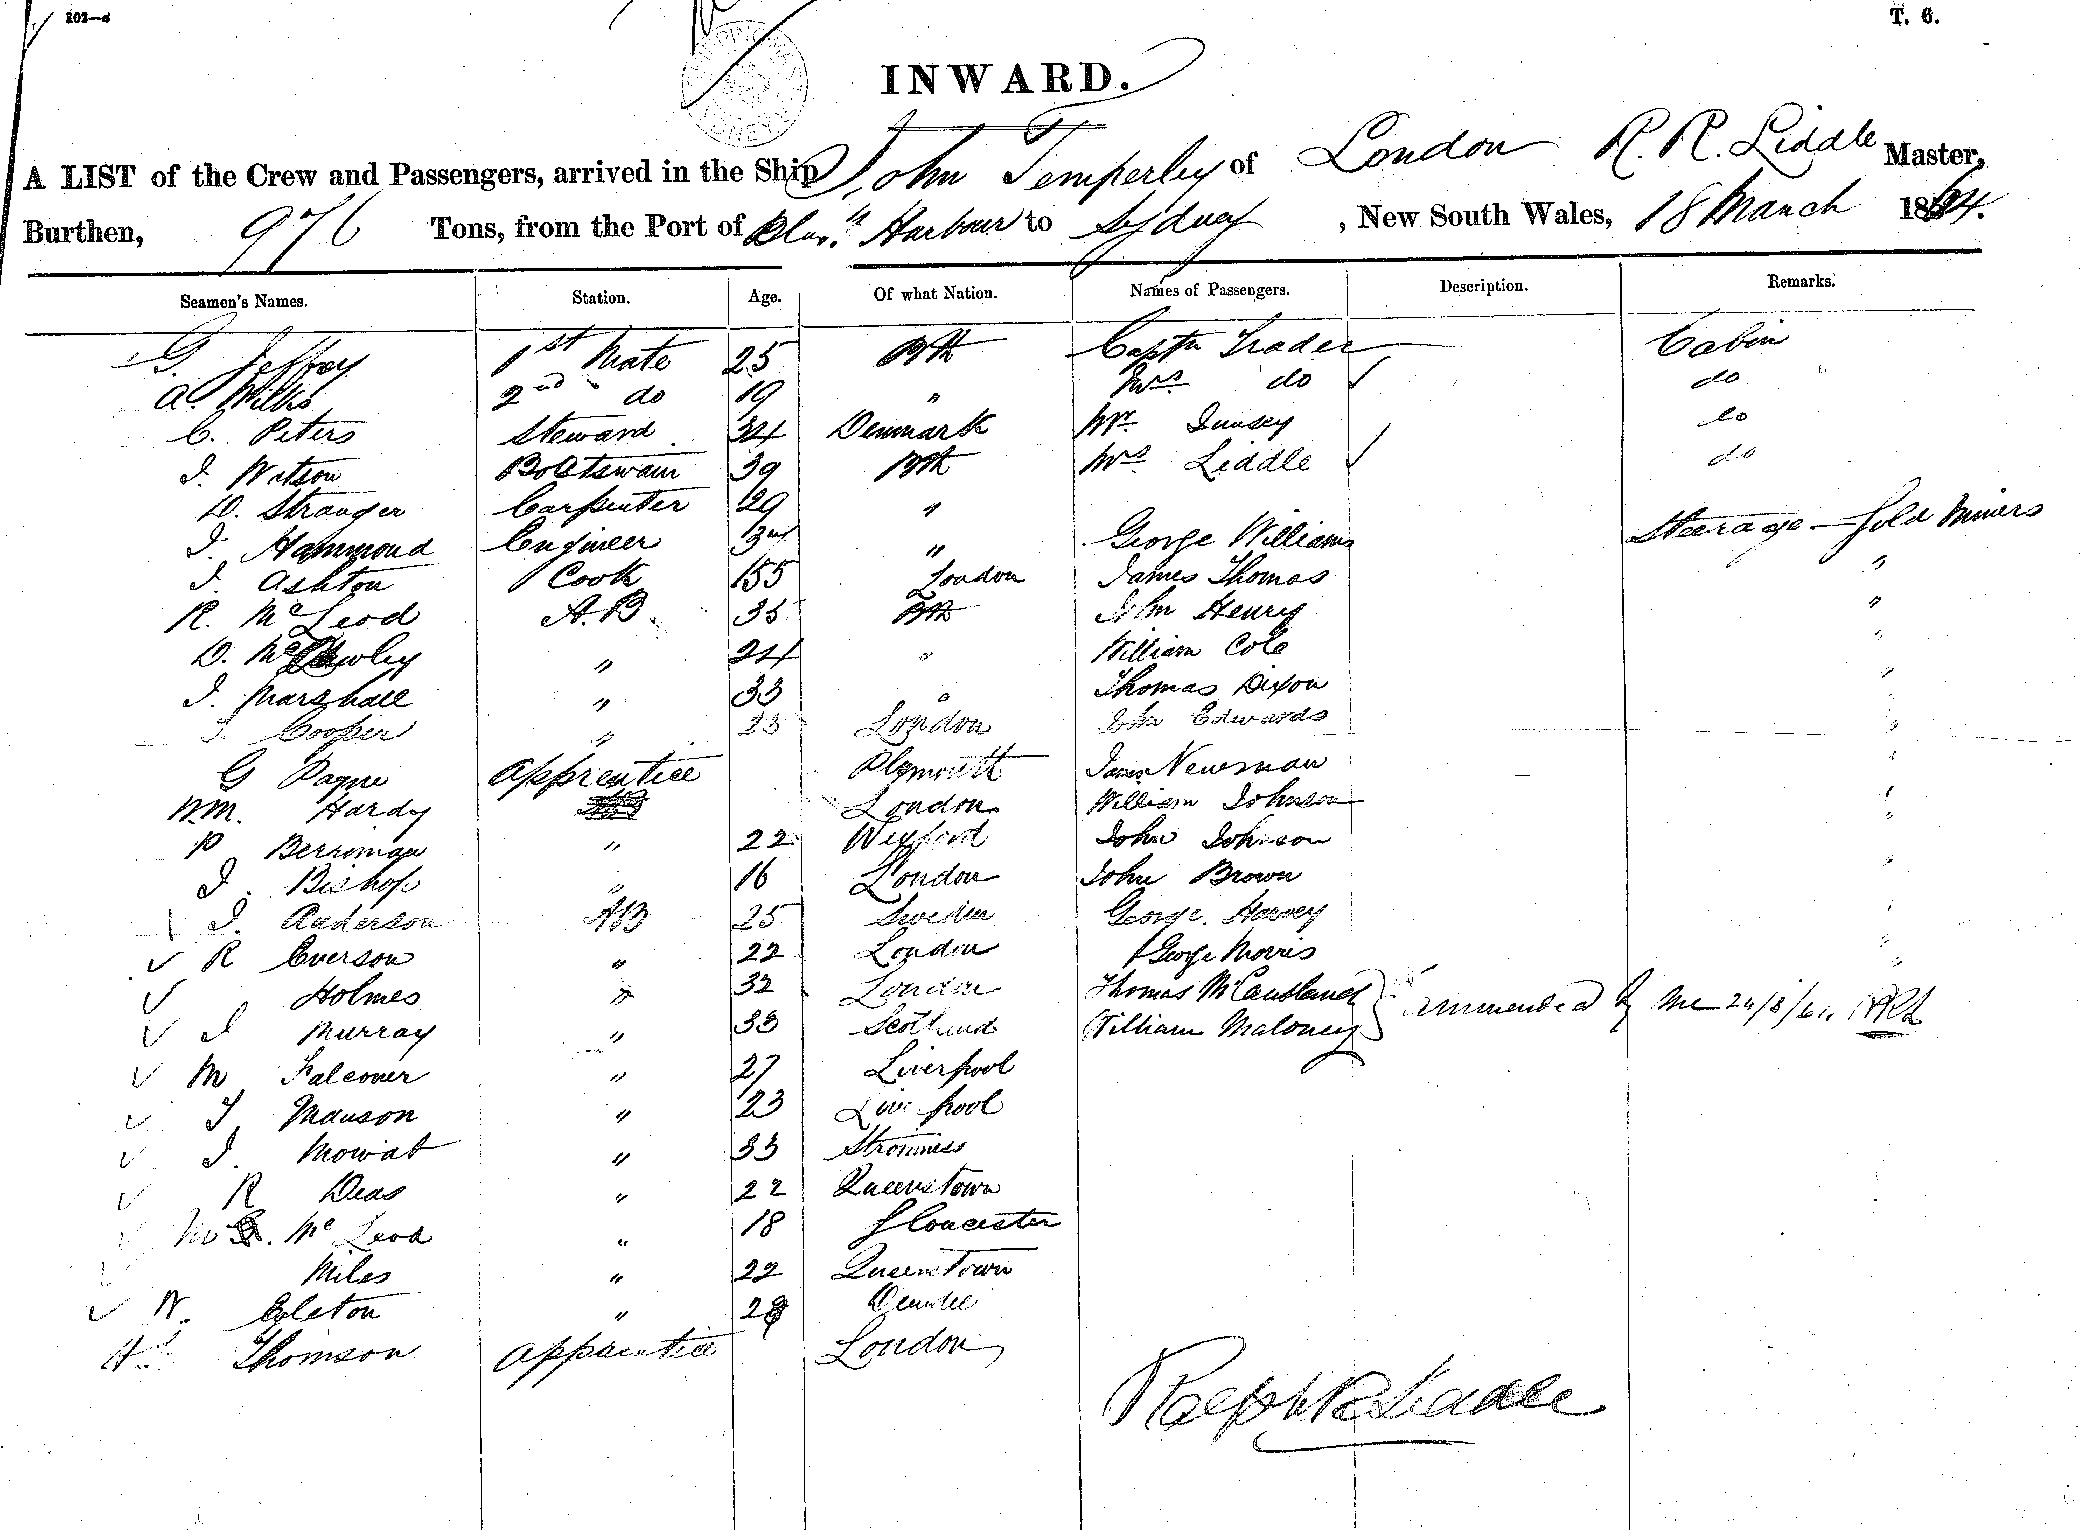 202—d
T. 6.
INWARD.
A LIST of the Crew and Passengers, arrived in the Ship John Temperley of London R. R. Liddle Master,
Burthen, 976 Tons, from the Port of Harbour to Sydney, New South Wales, 18 March 1864.
Seamen's Names. Station. Age. Of what Nation. Names of Passengers. Description. Remarks.
G. Jeffrey 1st Mate 25 Bth Captn Trader Cabin
A. Willis 2nd do 19 " Mrs do do
C. Peters Steward 34 Denmark Mr do
J. Watson Boatswain 39 Bth Mrs Liddle do
D. Stranger Carpenter 29 "
J. Hammond Engineer " George Williams Steerage — Gold Miners
J. Ashton Cook 55 London James Thomas "
R. McLeod A.B. 35 Bth John Henry "
D. " 24 " William Cole "
J. Marshall " 33 " Thomas Dixon "
J. Cooper " 23 London John Edwards "
G Payne Apprentice Plymouth James Newman "
Wm. Hardy London William Johnson "
P Berriman " 22 Wexford John Johnson "
J. Bishop " 16 London John Brown "
J. Anderson AB 25 Sweden George Harvey "
R Everson " 22 London George Morris "
Holmes " 32 London Thomas McCausland
J Murray " 33 Scotland William Maloney by me RRL
M Falconer " 27 Liverpool
J Manson " 23 Liverpool
J. Mowat " 33 Stromness
R Deas " 22 Queenstown
McLeod " 18 Gloucester
Miles " 22 Queenstown
W. Coleton " Dundee
Thomson Apprentice London
Ralph R Liddle